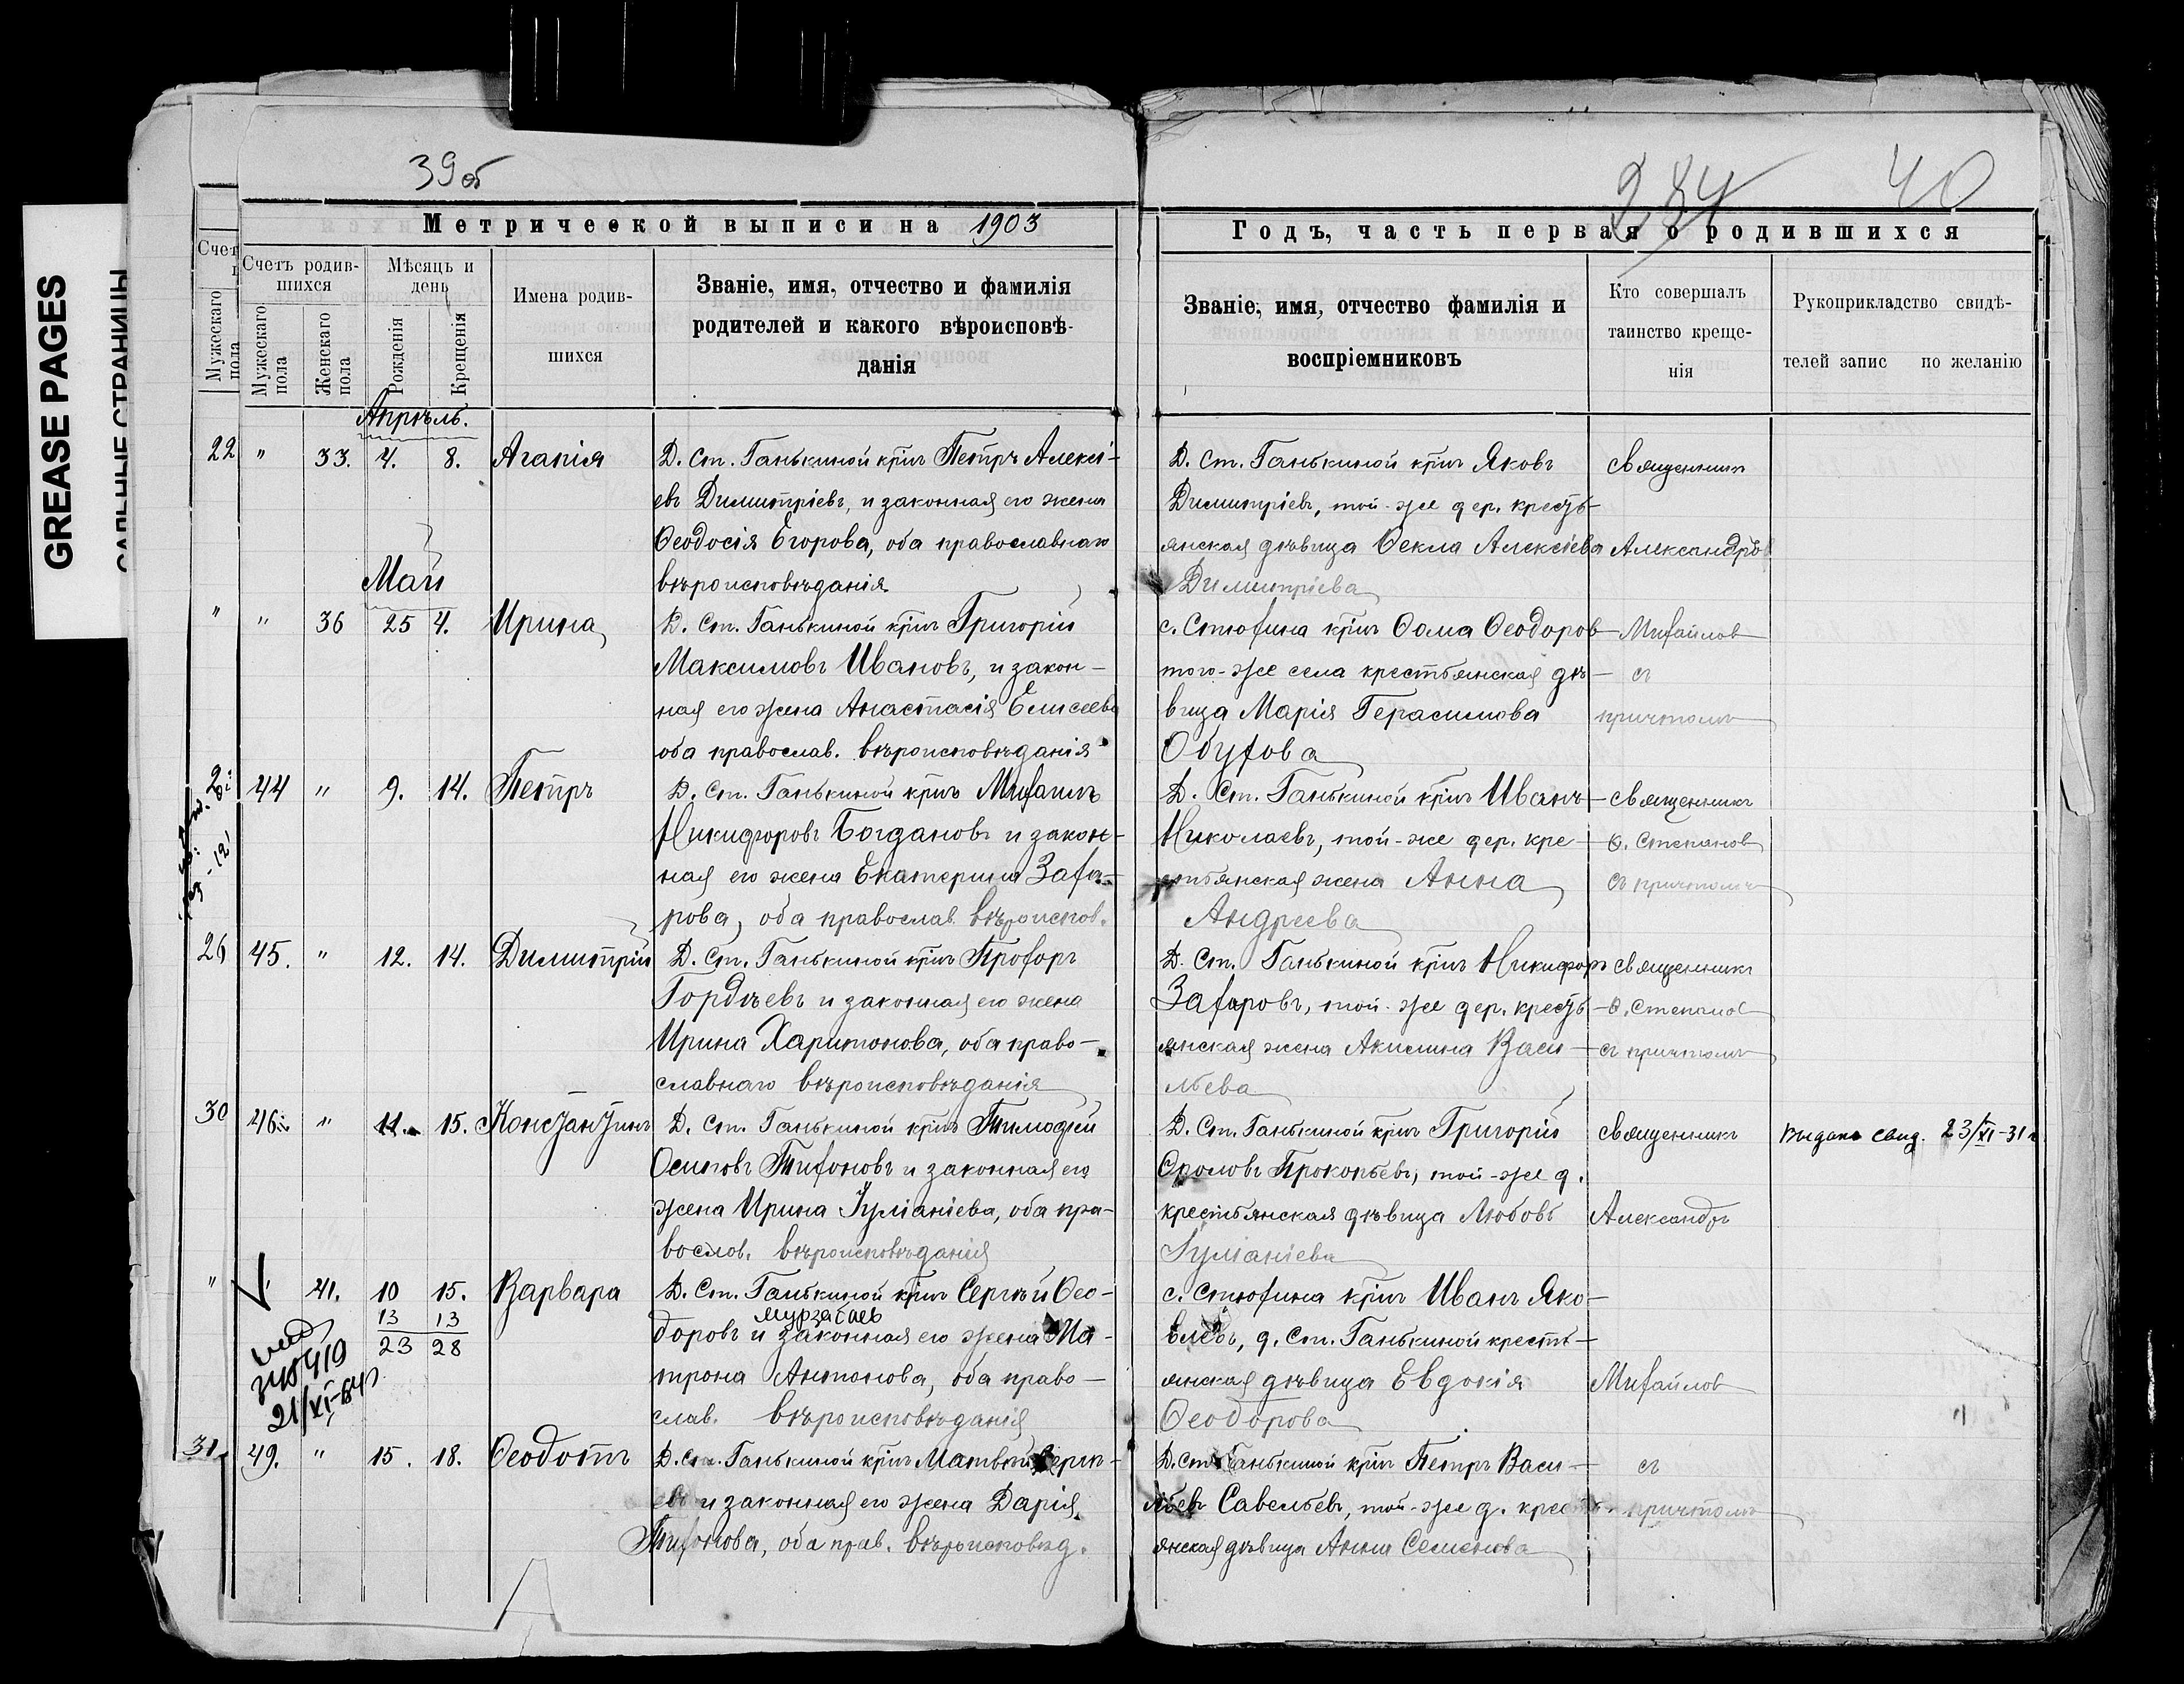 GREASE PAGES
САЛЬНЫЕ СТРАНИЦЫ
39об
284
40
Метрической выписи на 1903
Годъ, часть первая о родившихся
Счет
Мужескаго пола
Счетъ родив-
шихся
Мужескаго пола
Женскаго пола
Мѣсяцъ и
день
Рожденія
Крещенія
Имена родив-
шихся
Званіе, имя, отчество и фамилія
родителей и какого вѣроисповѣ-
данія
Званіе, имя, отчество фамилія и
воспріемниковъ
Кто совершалъ
таинство креще-
нія
Рукоприкладство свидѣ-
телей запис по желанію
Апрѣль.
22 " 33. 4. 8. Агапія Д. Ст. Ганькиной кр҃інъ Петръ Алексі-
евъ Димитріевъ, и законная его жена
Ѳеодосія Егорова, оба православнаго
вѣроисповѣданія
Д. Ст. Ганькиной кр҃інъ Яковъ
Димитріевъ, той-же дер. кресть-
янская дѣвица Ѳекла Алексіева
Димитріева
Священникъ
Александръ
Май
" " 36 25 4. Ирина Д. Ст. Ганькиной кр҃інъ Григорій
Максимовъ Ивановъ, и закон-
ная его жена Анастасія Елисеева
оба православ. вѣроисповѣданія
с. Стюхина кр҃інъ Ѳома Ѳеодоров
того-же села крестьянская дѣ-
вица Марія Герасимова
Обухова
Михайлов
съ
причтомъ
44 " 9. 14. Петръ Д. Ст. Ганькиной кр҃інъ Михаилъ
Никифоровъ Богдановъ и закон-
ная его жена Екатерина Заха-
рова, оба православ. вѣроиспов.
Д. Ст. Ганькиной кр҃інъ Иванъ
Николаевъ, той-же дер. кре-
стьянская жена Анна
Андреева
Священникъ
Ѳ. Степанов
съ причтомъ
26 45. " 12. 14. Димитрій Д. Ст. Ганькиной кр҃інъ Прохоръ
Гордѣевъ и законная его жена
Ирина Харитонова, оба право-
славнаго вѣроисповѣданія
Д. Ст. Ганькиной кр҃інъ Никифоръ
Захаровъ, той-же дер. кресть-
янская жена Акилина Васи-
льева
Священникъ
Ѳ. Степанов
съ причтомъ
30 46. " 11. 15. Константинъ Д. Ст. Ганькиной кр҃інъ Тимоѳей
Осиповъ Тихоновъ и законная его
жена Ирина Іуліаніева, оба пра-
вослов. вѣроисповѣданія
Д. Ст. Ганькиной кр҃інъ Григорій
Ѳроловъ Прокопьевъ, той-же д.
крестьянская дѣвица Любовь
Іуліаніева
Священникъ
Александръ
Выдано свид. 23/XI-31 г
" " 41. 10 15. Варвара Д. Ст. Ганькиной кр҃інъ Сергѣй Ѳео-
13 13
23 28
мурзабаев
доровъ и законная его жена Ма-
трона Антонова, оба право-
слав. вѣроисповѣданія
с. Стюхина кр҃інъ Иванъ Яко-
влевъ, д. Ст. Ганькиной кресть-
янская дѣвица Евдокія
Ѳеодорова
Михайлов
21/XI-64
31. 49. " 15. 18. Ѳеодотъ Д. Ст. Ганькиной кр҃інъ Матвѣй Сергѣ-
евъ и законная его жена Дарія
Тихонова, оба прав. вѣроисповѣд.
Д. Ст. Ганькиной кр҃інъ Петръ Васи-
льевъ Савельевъ, той-же д. кресть-
янская дѣвица Анна Семенова
съ
причтомъ